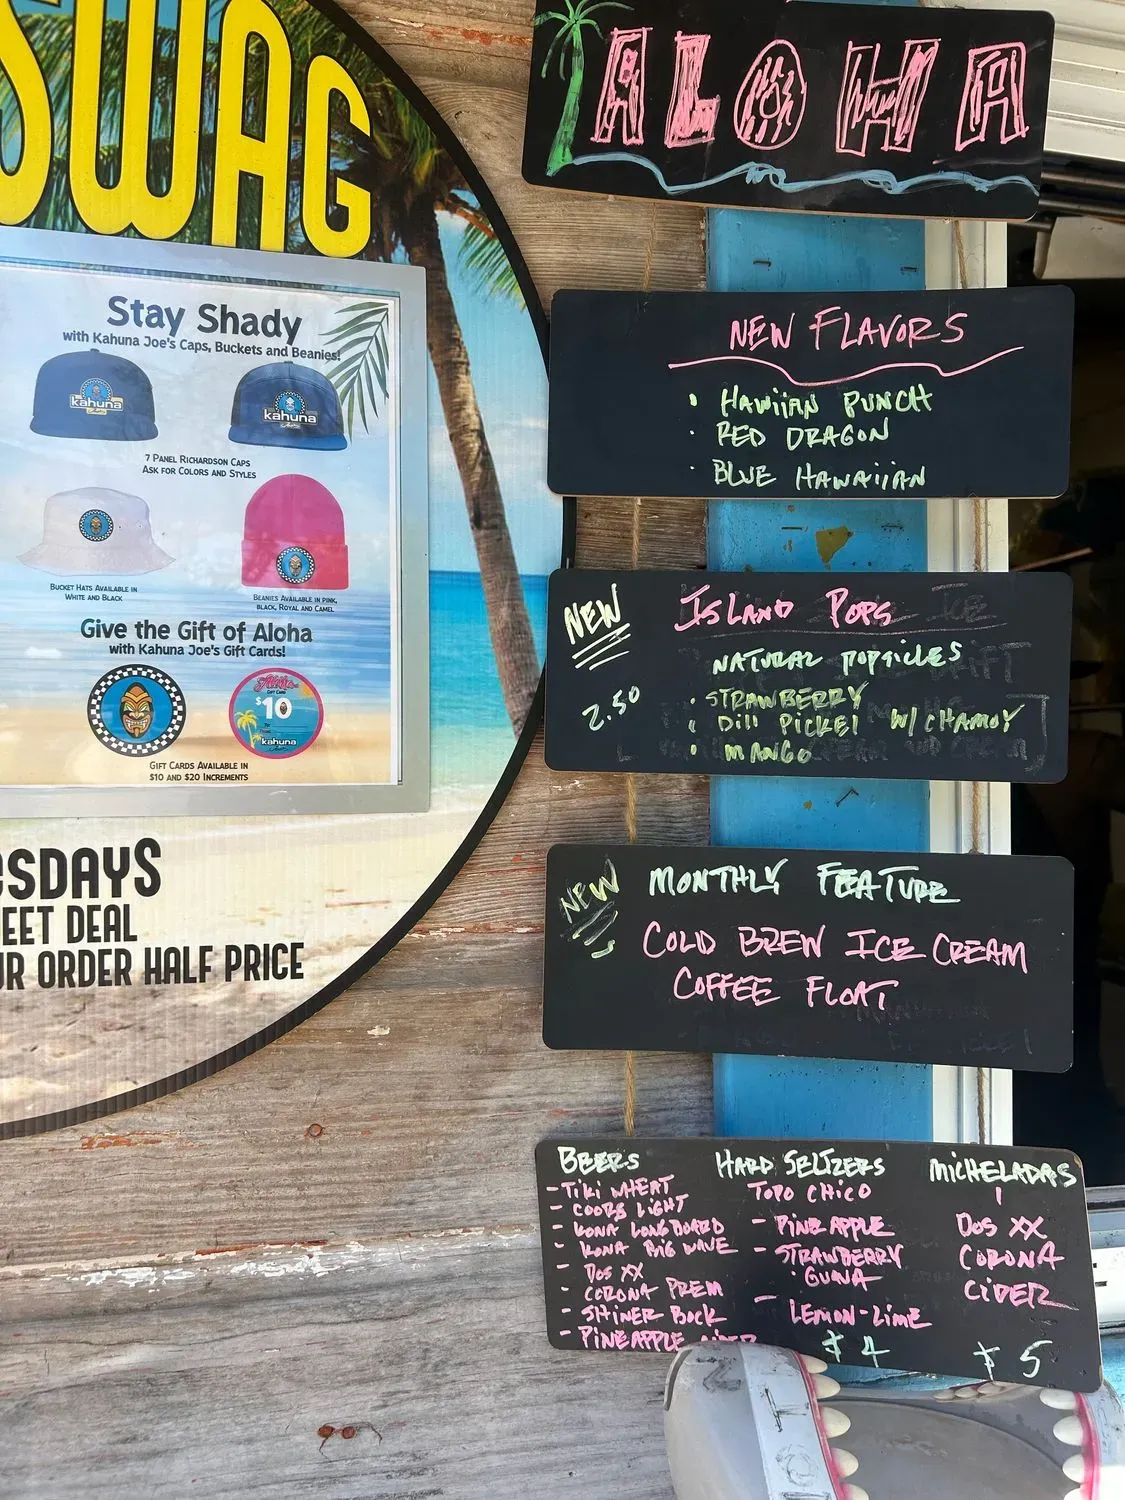 SWAG
Stay Shady
with Kahuna Joe's Caps, Buckets and Beanies!
kahuna
kahuna
7 PANEL RICHARDSON CAPS
ASK FOR COLORS AND STYLES
BUCKET HATS AVAILABLE IN
WHITE AND BLACK
BEANIES AVAILABLE IN PINK,
BLACK, ROYAL AND CAMEL
Give the Gift of Aloha
with Kahuna Joe's Gift Cards!
Aloha
GIFT CARD
$10
kahuna
GIFT CARDS AVAILABLE IN
$10 AND $20 INCREMENTS
SDAYS
EET DEAL
UR ORDER HALF PRICE
ALOHA
NEW FLAVORS
• HAWIIAN PUNCH
• RED DRAGON
• BLUE HAWAIIAN
NEW
ISLAND POPS
NATURAL POPSICLES
2.50
• STRAWBERRY
• DILL PICKEL W/ CHAMOY
• MANGO
NEW
MONTHLY FEATURE
COLD BREW ICE CREAM
COFFEE FLOAT
BEERS
- TIKI WHEAT
- COORS LIGHT
- KONA LONGBOARD
- KONA BIG WAVE
- DOS XX
- CORONA PREM
- SHINER BOCK
- PINEAPPLE CIDER
HARD SELTZERS
TOPO CHICO
- PINEAPPLE
- STRAWBERRY
GUAVA
- LEMON-LIME
$4
MICHELADAS
DOS XX
CORONA
CIDER
$5